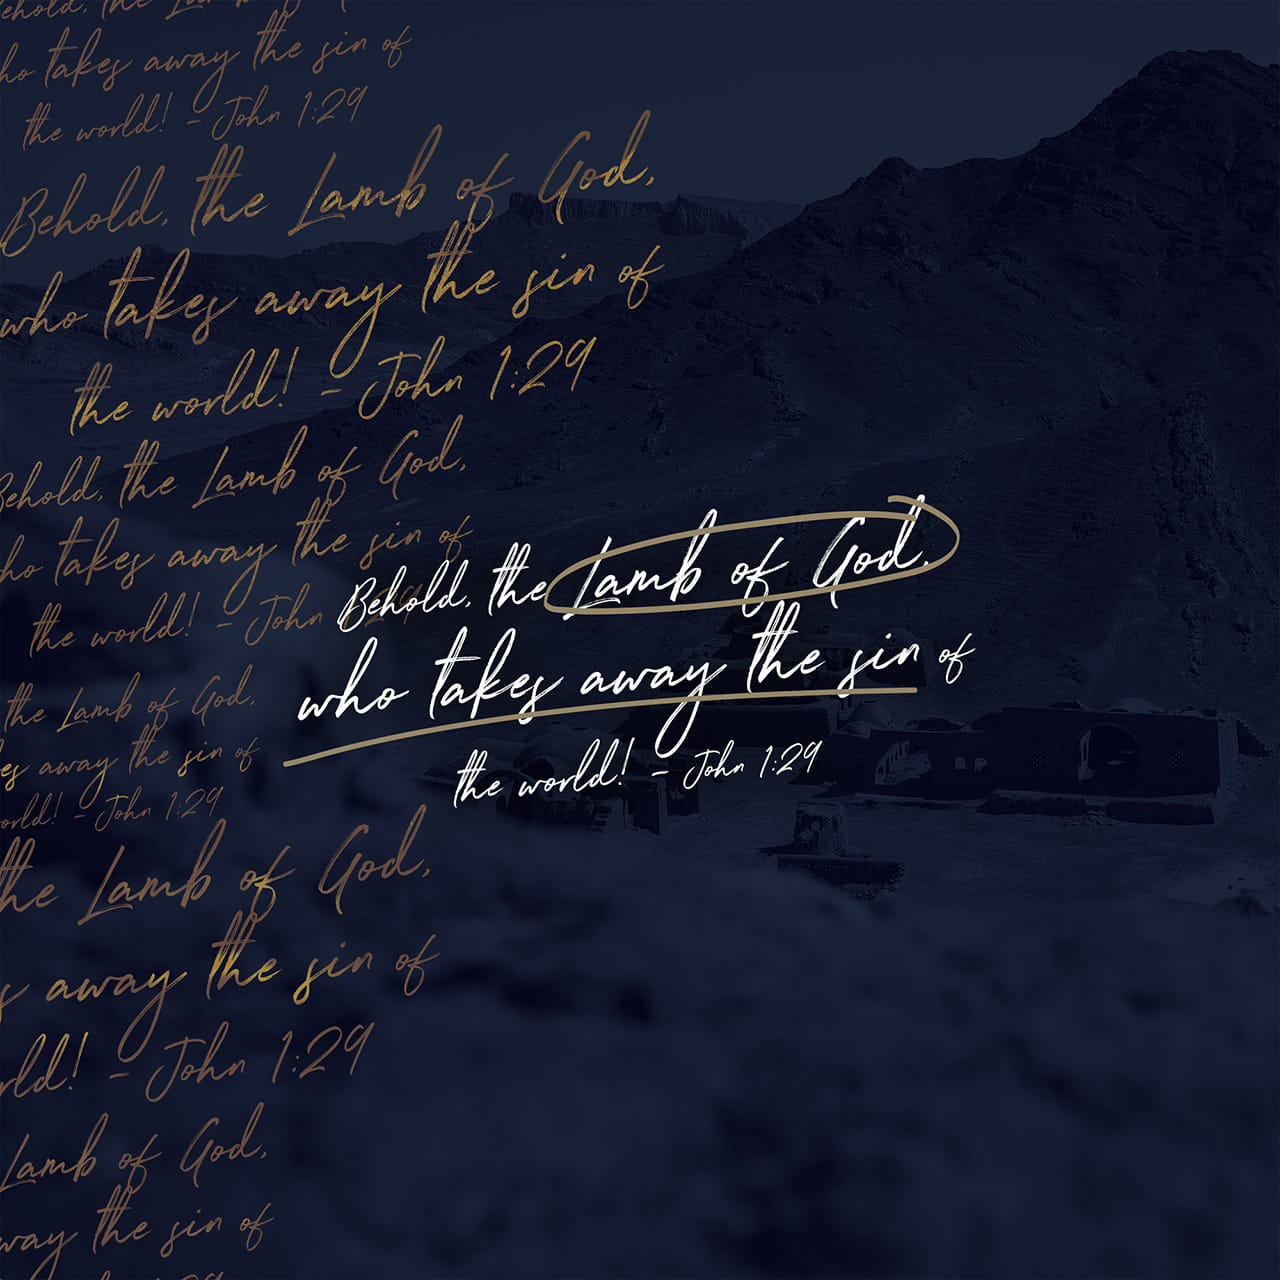 Behold, the Lamb of God,
who takes away the sin of
the world! - John 1:29
Behold, the Lamb of God,
who takes away the sin of
the world! - John 1:29
Behold, the Lamb of God,
who takes away the sin of
the world! - John 1:29
Behold, the Lamb of God,
who takes away the sin of
the world! - John 1:29
the Lamb of God,
es away the sin of
orld! - John 1:29
the Lamb of God,
s away the sin of
rld! - John 1:29
Lamb of God,
way the sin of
1:29